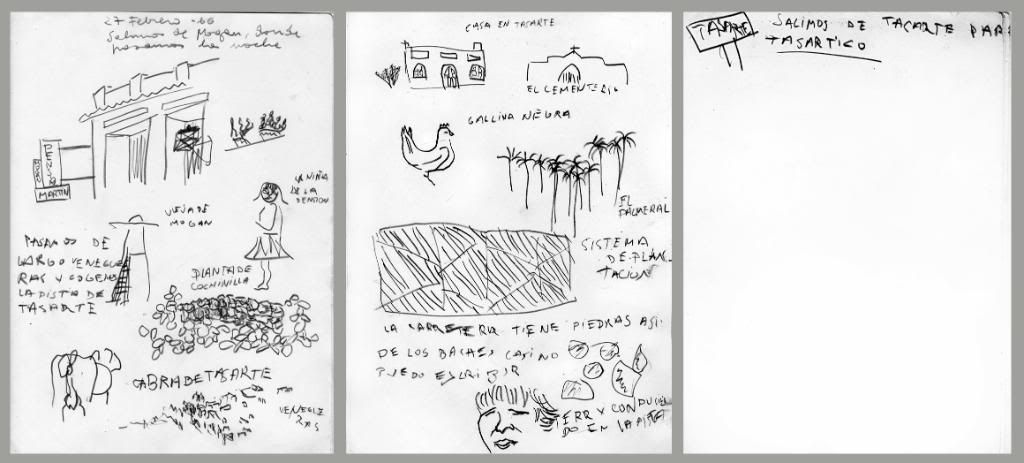 27 Febrero -66
Salimos de Mogan, donde
pasamos la noche
PENSION
MARTIN
LA NIÑA
DE LA
PENSION
VIEJA DE
MOGAN
PASAMOS DE
LARGO VENEGUE
RAS Y COGEMOS
LA PISTA DE
TASARTE
PLANTA DE
COCHINILLA
CABRA DE TASARTE
VENEGUE
RAS
CASA EN TASARTE
EL CEMENTERIO
GALLINA NEGRA
EL
PALMERAL
SISTEMA
DE PLAN
TACIONES
LA CARRETERA TIENE PIEDRAS ASI
DE LOS BACHES CASI NO
PUEDO ESCRIBIR
Y CONDUCIEN
DO EN LA PISTA
TASARTE
SALIMOS DE TASARTE PARA
TASARTICO